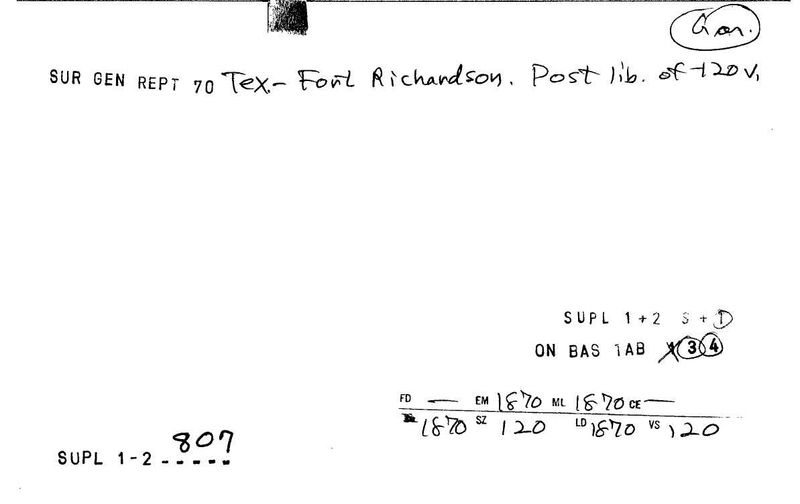 Gen.
SUR GEN REPT 70 Tex- Fort Richardson. Post lib. of 120 v.
SUPL 1+2 S + D
ON BAS 1AB 3 4
FD — EM 1870 ML 1870 CE —
1870 SZ 120 LD 1870 VS 120
807
SUPL 1-2 -----